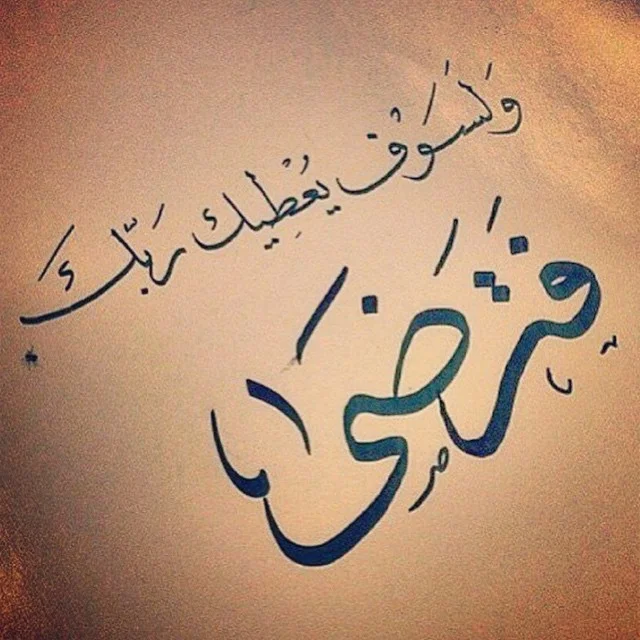 وَلَسَوْفَ يُعْطِيكَ رَبّكَ
فَتَرضَى